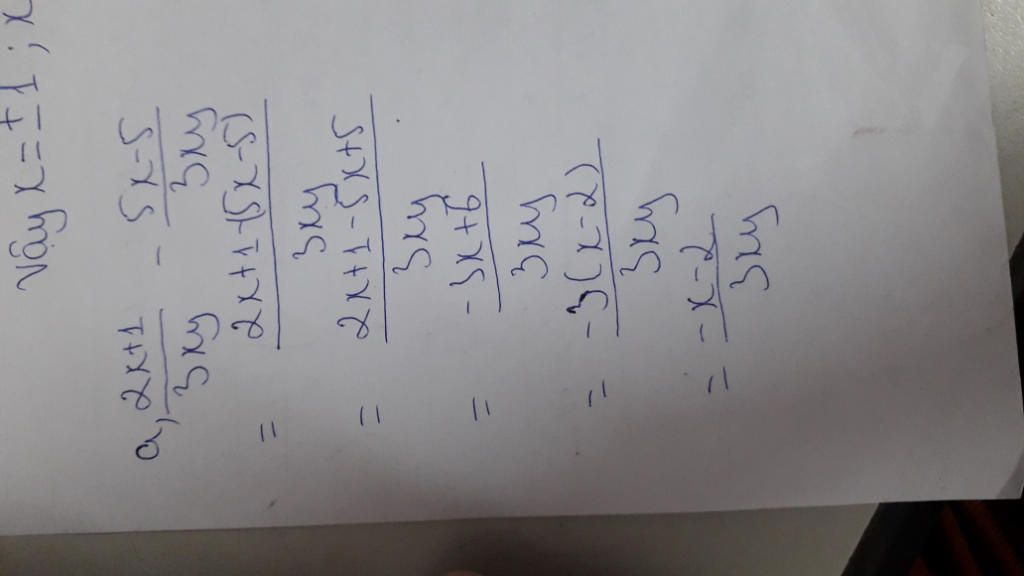 Vậy x = ±1 ; x
a, 2x+1 / 3xy - 5x-5 / 3xy
= 2x+1-(5x-5) / 3xy
= 2x+1-5x+5 / 3xy
= -3x+6 / 3xy
= -3(x-2) / 3xy
= -x-2 / 3xy